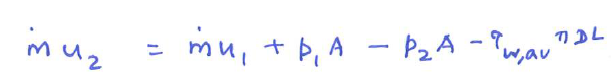 ṁu₂ = ṁu₁ + p₁A − p₂A − τ_{w,av} πDL